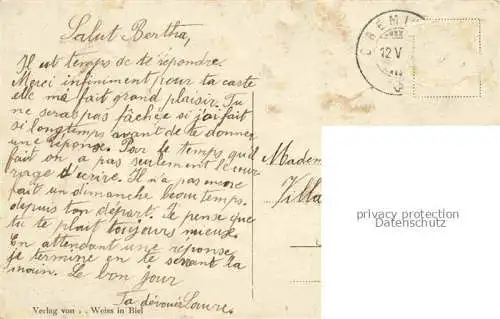 Salut Bertha,
Il est temps de te répondre
Merci infiniment pour ta carte
elle m'a fait grand plaisir. Tu
ne seras pas fâchée si j'ai fait
si longtemps avant de te donner
une réponse. Par le temps qu'il
fait on a pas seulement le cou-
rage d'écrire. Il n'a pas encore
fait un dimanche beau temps
depuis ton départ. Je pense que
tu te plait toujours mieux.
En attendant une réponse
je termine en te serrant la
main. Le bon jour
Ta dévouée Laure.
Verlag von . . Weiss in Biel
CRÉMI
12 V
Madem
Villa
privacy protection
Datenschutz